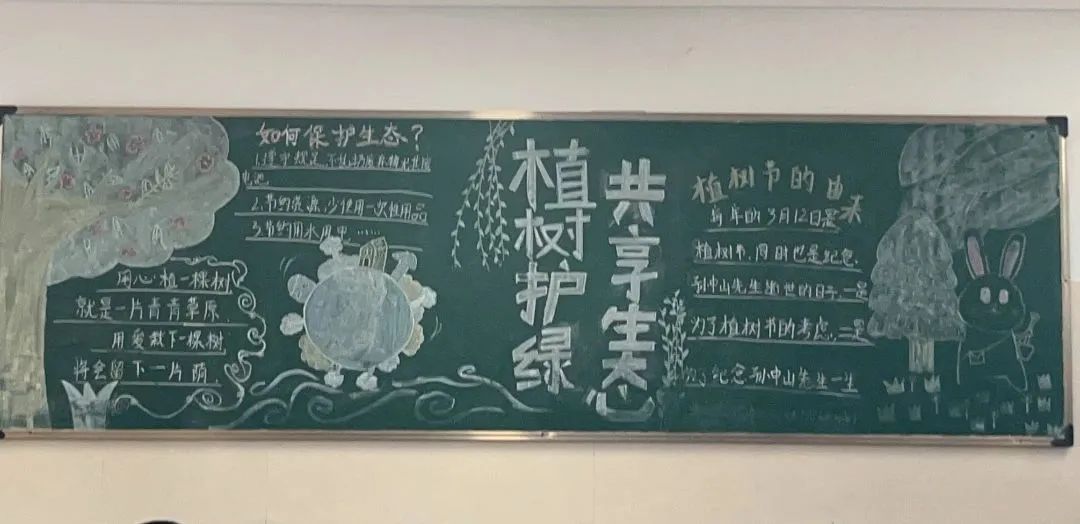 如何保护生态?
电池.
2.节约资源,少使用一次性用品
3.节约用水用电......
用心植一棵树
就是一片青青草原.
用爱栽下一棵树
将会留下一片荫.
植树护绿
共享生态
植树节的由来
每年的3月12日是
植树节.同时也是纪念.
孙中山先生逝世的日子.一是
为了植树节的考虑.,二是
为了纪念孙中山先生一生